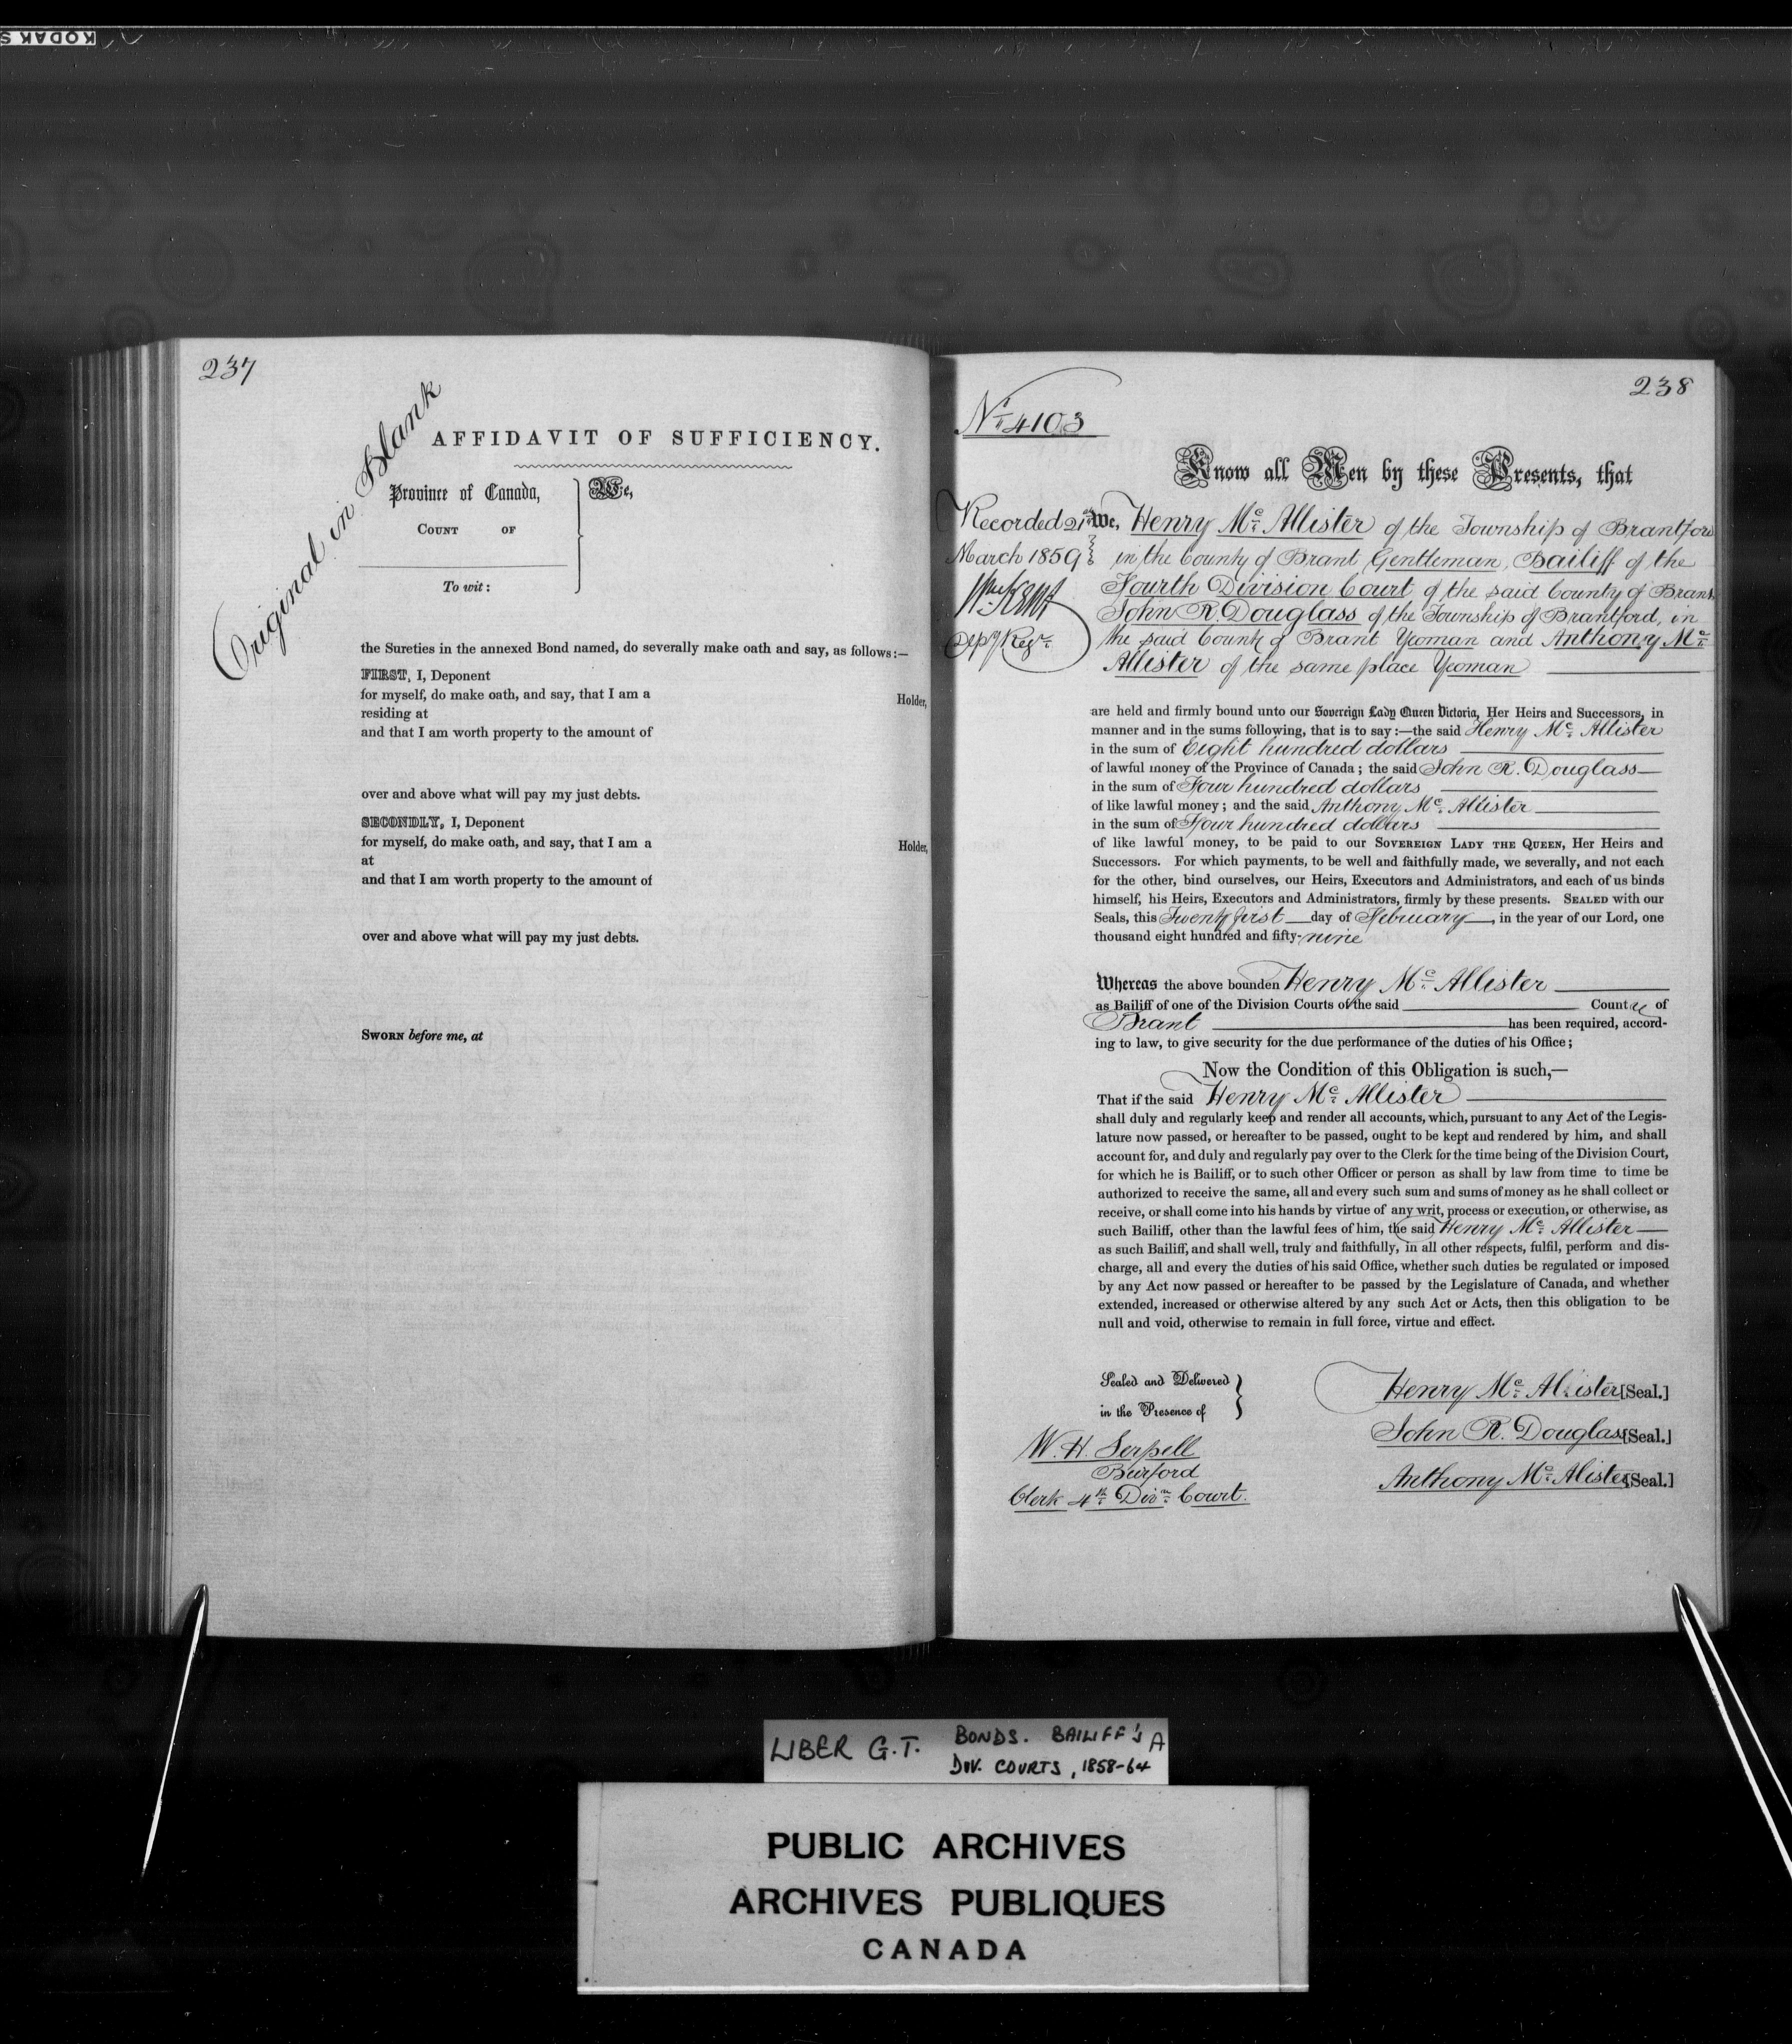 KODAK S
237
Original in Blank
AFFIDAVIT OF SUFFICIENCY.
Province of Canada,
COUNT OF
To wit:
We,
the Sureties in the annexed Bond named, do severally make oath and say, as follows:—
FIRST, I, Deponent
for myself, do make oath, and say, that I am a Holder,
residing at
and that I am worth property to the amount of
over and above what will pay my just debts.
SECONDLY, I, Deponent
for myself, do make oath, and say, that I am a Holder,
at
and that I am worth property to the amount of
over and above what will pay my just debts.
SWORN before me, at
238
No 4103
Know all Men by these Presents, that
Recorded 21st
March 1859
Wm Kent
Dpy Regr.
We, Henry Mc Allister of the Township of Brantford
in the County of Brant Gentleman, Bailiff of the
Fourth Division Court of the said County of Brant
John R. Douglass of the Township of Brantford, in
the said County of Brant Yeoman and Anthony Mc
Allister of the same place Yeoman
are held and firmly bound unto our Sovereign Lady Queen Victoria, Her Heirs and Successors, in
manner and in the sums following, that is to say:—the said Henry Mc Allister
in the sum of Eight hundred dollars
of lawful money of the Province of Canada; the said John R. Douglass
in the sum of Four hundred dollars
of like lawful money; and the said Anthony Mc Allister
in the sum of Four hundred dollars
of like lawful money, to be paid to our SOVEREIGN LADY THE QUEEN, Her Heirs and
Successors. For which payments, to be well and faithfully made, we severally, and not each
for the other, bind ourselves, our Heirs, Executors and Administrators, and each of us binds
himself, his Heirs, Executors and Administrators, firmly by these presents. SEALED with our
Seals, this Twenty first day of February, in the year of our Lord, one
thousand eight hundred and fifty-nine
Whereas the above bounden Henry Mc Allister
as Bailiff of one of the Division Courts of the said County of
Brant has been required, accord-
ing to law, to give security for the due performance of the duties of his Office;
Now the Condition of this Obligation is such,—
That if the said Henry Mc Allister
shall duly and regularly keep and render all accounts, which, pursuant to any Act of the Legis-
lature now passed, or hereafter to be passed, ought to be kept and rendered by him, and shall
account for, and duly and regularly pay over to the Clerk for the time being of the Division Court,
for which he is Bailiff, or to such other Officer or person as shall by law from time to time be
authorized to receive the same, all and every such sum and sums of money as he shall collect or
receive, or shall come into his hands by virtue of any writ, process or execution, or otherwise, as
such Bailiff, other than the lawful fees of him, the said Henry Mc Allister
as such Bailiff, and shall well, truly and faithfully, in all other respects, fulfil, perform and dis-
charge, all and every the duties of his said Office, whether such duties be regulated or imposed
by any Act now passed or hereafter to be passed by the Legislature of Canada, and whether
extended, increased or otherwise altered by any such Act or Acts, then this obligation to be
null and void, otherwise to remain in full force, virtue and effect.
Sealed and Delivered
in the Presence of
W. H. Serpell
Burford
Clerk 4th Divn Court.
Henry Mc Alister [Seal.]
John R. Douglass [Seal.]
Anthony Mc Alister [Seal.]
LIBER G.T. BONDS. BAILIFF'S A
DIV. COURTS, 1858-64
PUBLIC ARCHIVES
ARCHIVES PUBLIQUES
CANADA